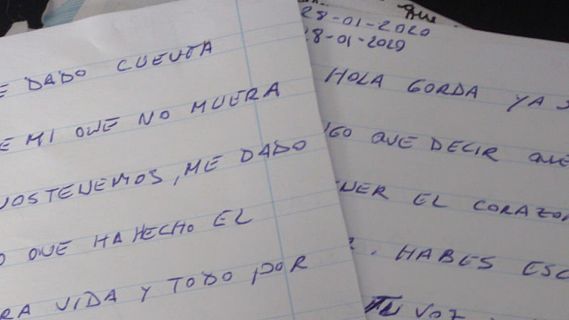 DADO CUENTA
E MI QUE NO MUERA
NOSTENEMOS, ME DADO
O QUE HA HECHO EL
RA VIDA Y TODO POR
28-01-2020
8-01-2020
HOLA GORDA YA S
GO QUE DECIR QUE
NER EL CORAZO
HABES ESC
TU VOZ